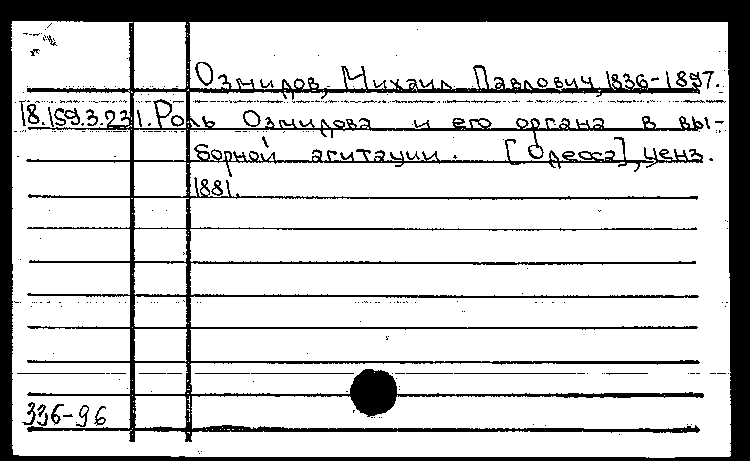 Озмидов, Михаил Павлович, 1836-1897.
18.159.3.23 1. Роль Озмидова и его органа в вы-
борной агитации. [Одесса], ценз.
1881.
336-96